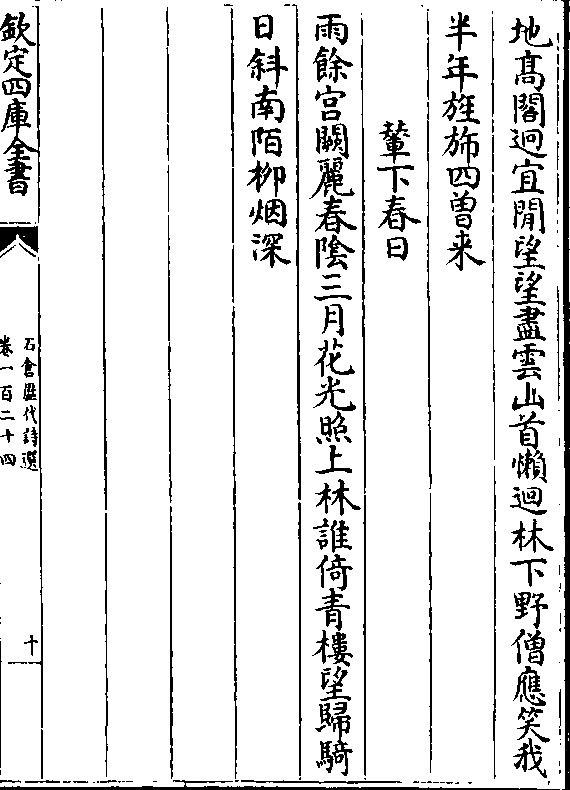 地髙閣迥宜閒望望盡雲山首懶迴林下野僧應笑我
半年旌斾四曽来
輦下春日
雨餘宫闕麗春陰三月花光照上林誰倚青樓望歸騎
日斜南陌栁烟深
欽定四庫全書
石倉歴代詩選
卷一百二十四
十